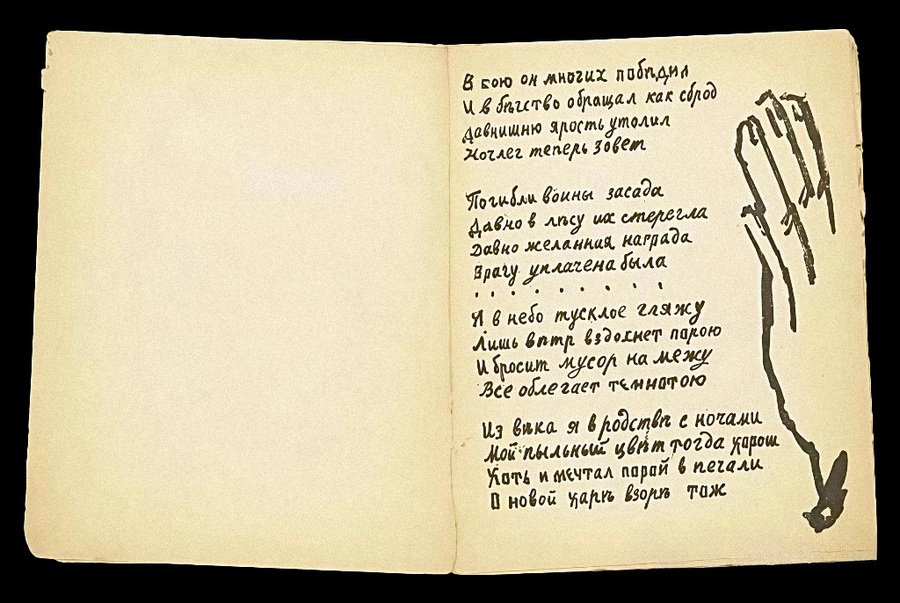 В бою он многих побѣдил
И в бѣгство обращал как сброд
Давнишню ярость утолил
Ночлег теперь зовет
Погибли воины засада
Давно в лѣсу их стерегла
Давно желанния награда
Врагу уплачена была
. . . . . . . . .
Я в небо тусклое гляжу
Лишь вѣтр вздохнет парою
И бросит мусор на межу
Все облегает темнотою
Из вѣка я в родствѣ с ночами
Мой пыльный цвѣт тогда хорош
Хоть и мечтал парой в печали
О новой харѣ взорѣ тож